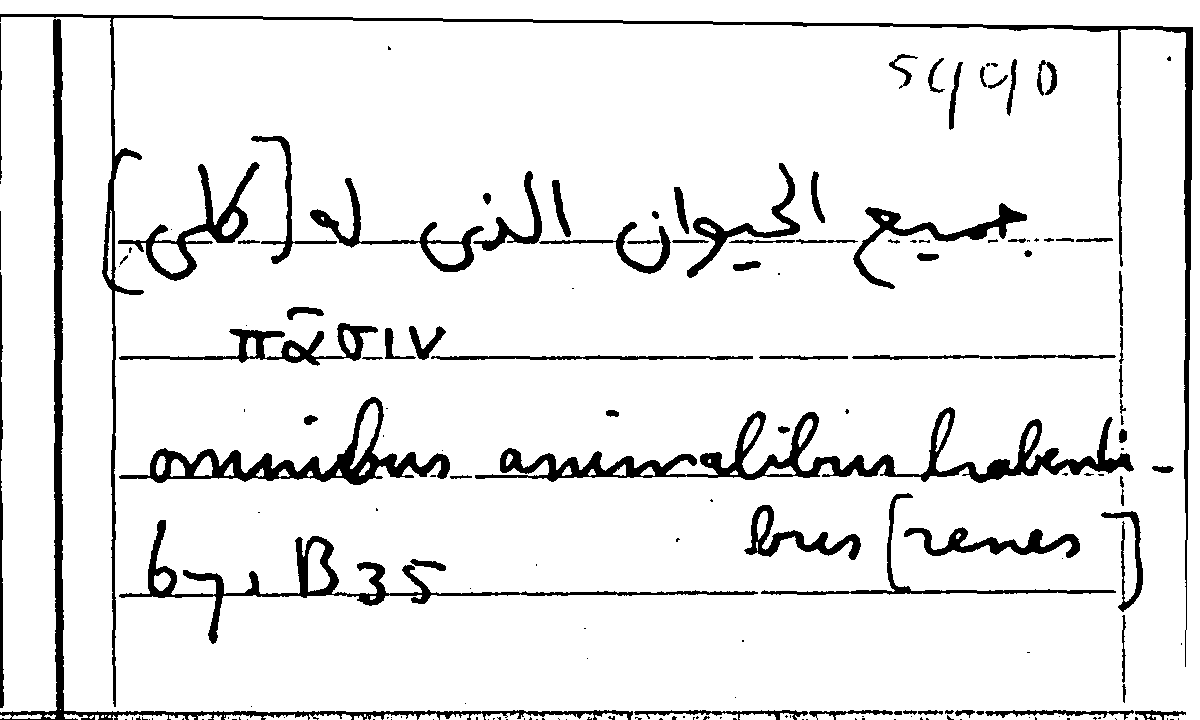 5990
جميع الحيوان الذى له [كلى]
πᾶσιν
omnibus animalibus habenti-
bus [renes]
671 B 35